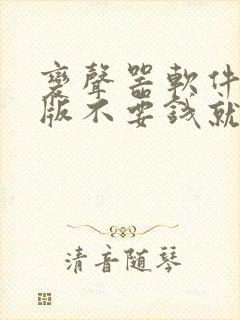 變聲器軟件
版不要錢就
清音随琴